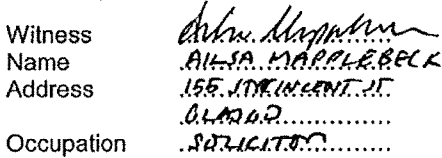 Witness
Name AILSA MAPPLEBECK
Address 155 ST VINCENT ST
Occupation SOLICITOR